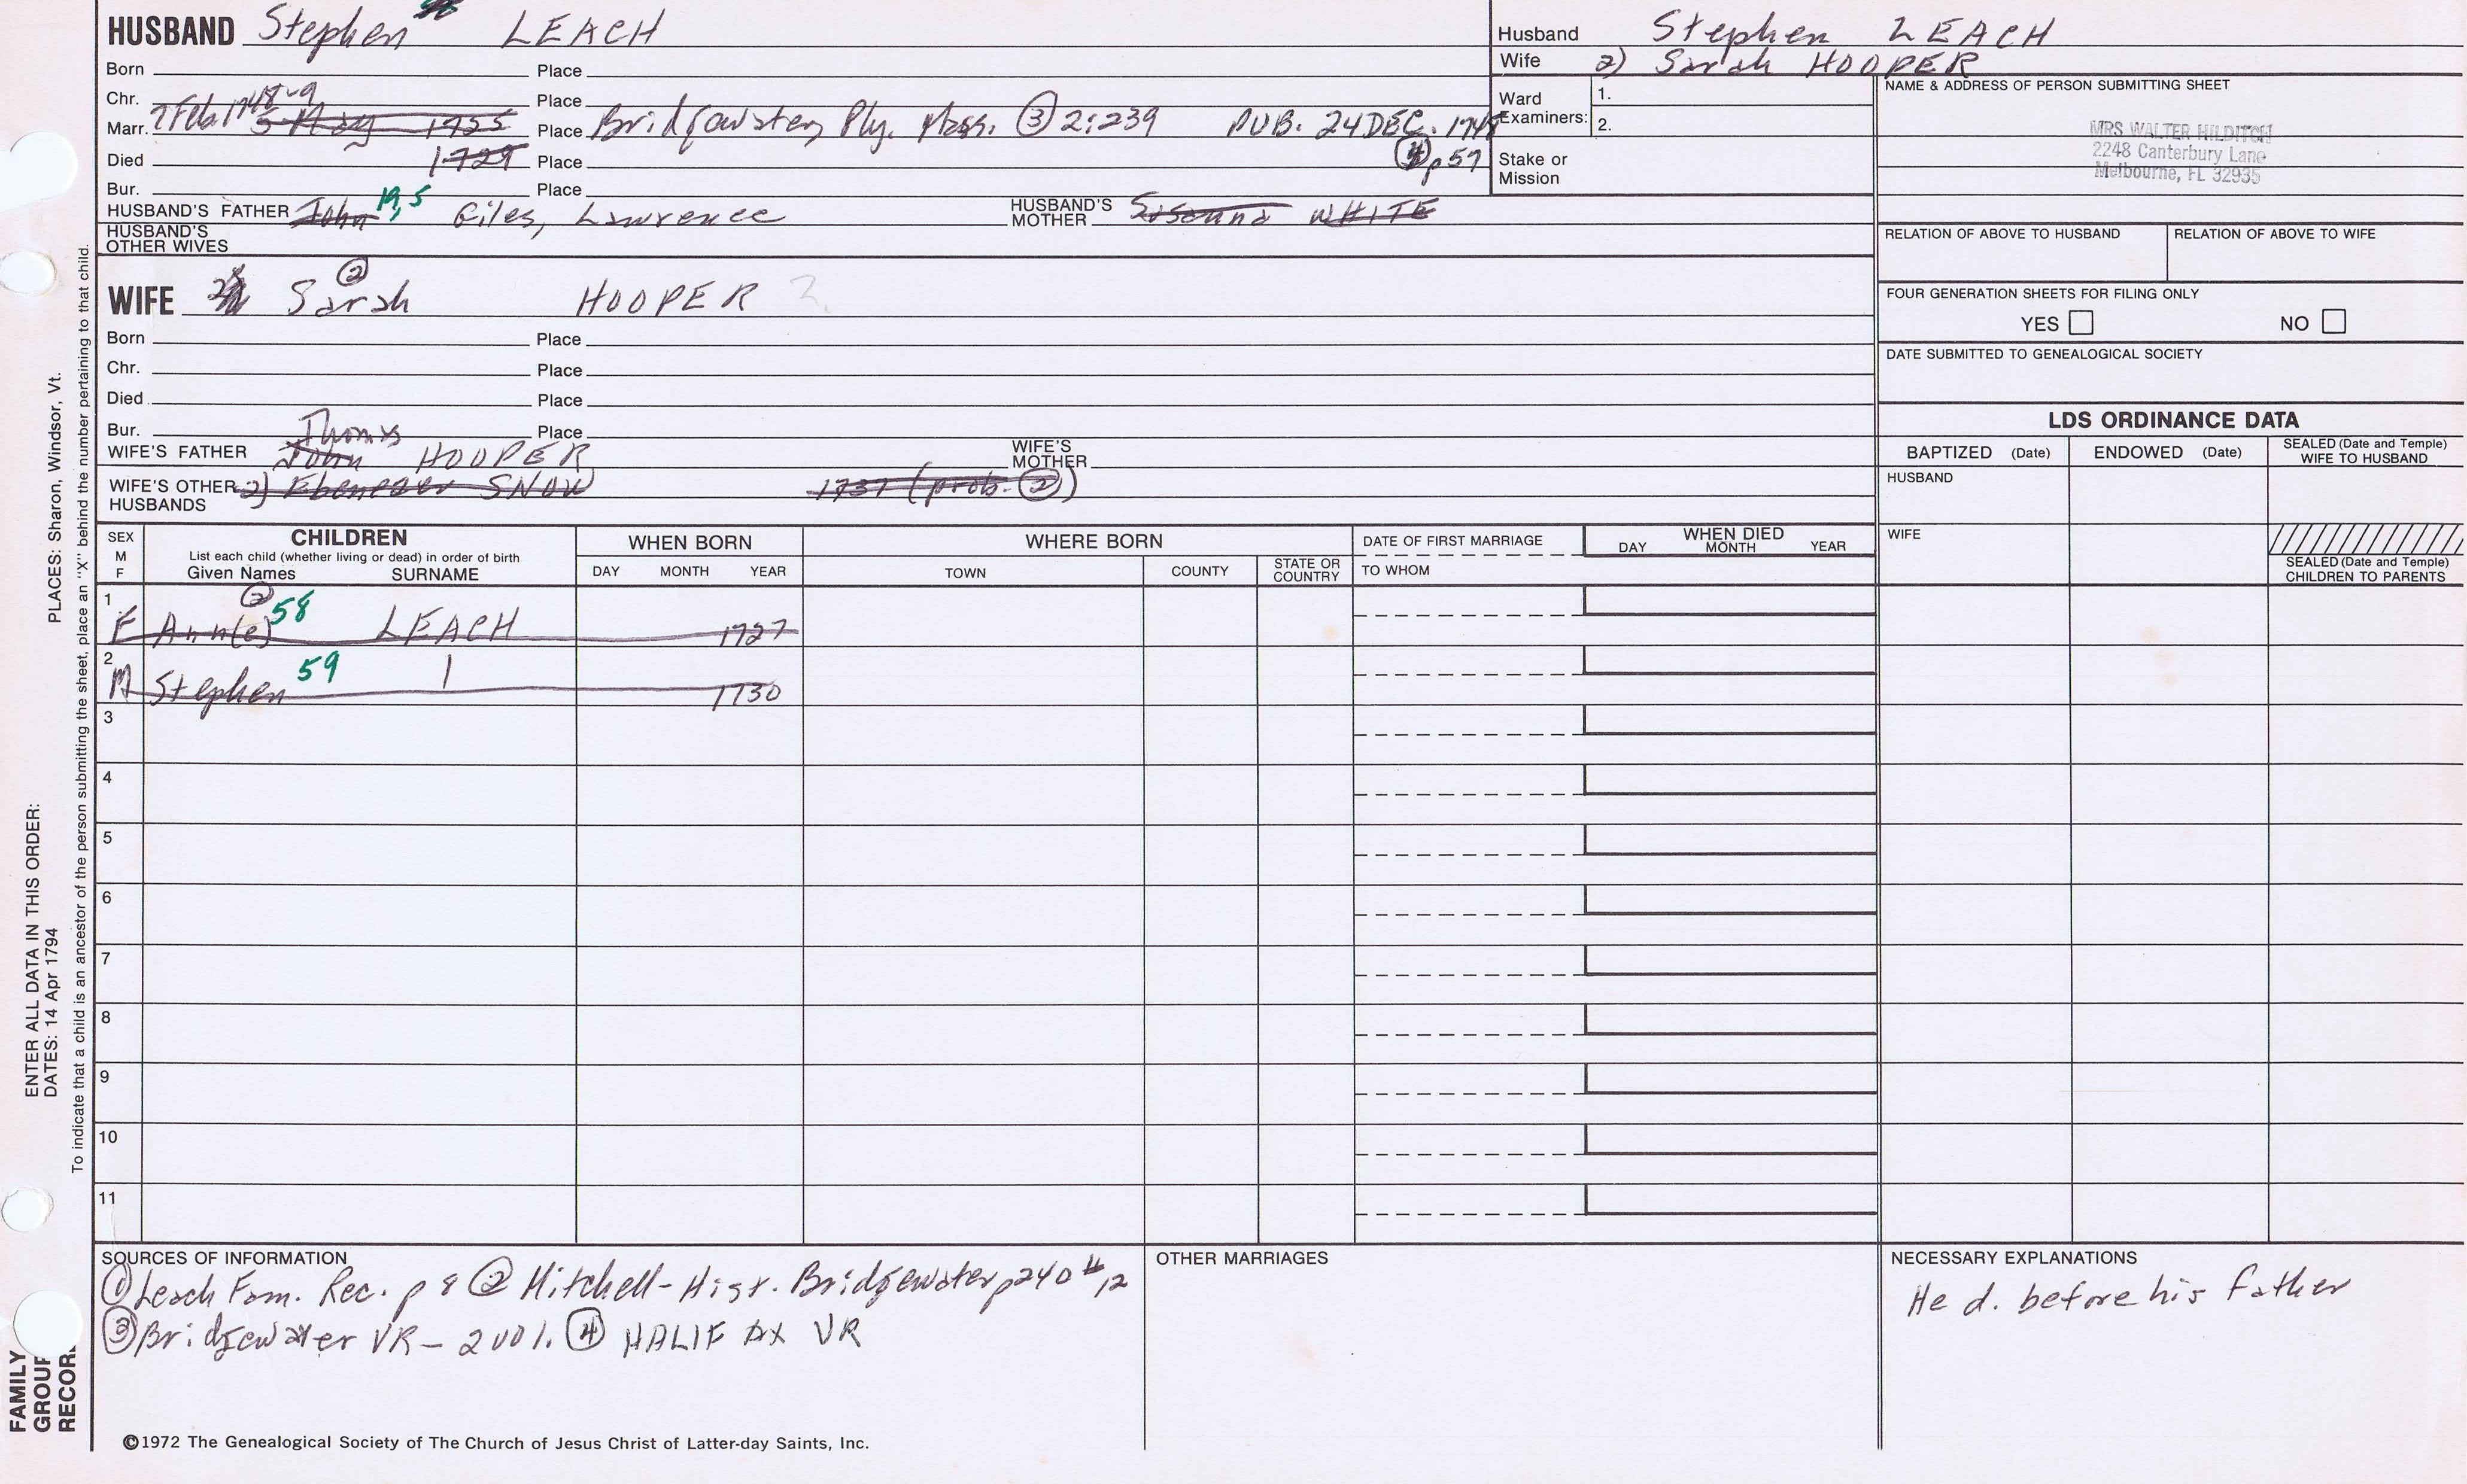 HUSBAND Stephen LEACH
Born Place
Chr. Place
Marr. 7 Feb. 1748-9 5 May 1725 Place Bridgewater, Ply. Mass. ③ 2:239 PUB. 24 DEC. 1748
Died 1729 Place ④ p 57
Bur. Place
HUSBAND'S FATHER John 19,5 Giles, Lawrence HUSBAND'S MOTHER WHITE
HUSBAND'S OTHER WIVES
Husband Stephen LEACH
Wife 2) Sarah HOOPER
Ward Examiners: 1.
2.
Stake or Mission
NAME & ADDRESS OF PERSON SUBMITTING SHEET
MRS WALTER HILDITCH
2248 Canterbury Lane
Melbourne, FL 32935
RELATION OF ABOVE TO HUSBAND RELATION OF ABOVE TO WIFE
FOUR GENERATION SHEETS FOR FILING ONLY
YES NO
DATE SUBMITTED TO GENEALOGICAL SOCIETY
WIFE Sarah ② HOOPER ?
Born Place
Chr. Place
Died Place
Bur. Place
WIFE'S FATHER John Thomas HOOPER WIFE'S MOTHER
WIFE'S OTHER HUSBANDS 2) Ebenezer SNOW 1737 (prob. ②)
LDS ORDINANCE DATA
BAPTIZED (Date) ENDOWED (Date) SEALED (Date and Temple) WIFE TO HUSBAND
HUSBAND
WIFE
SEALED (Date and Temple) CHILDREN TO PARENTS
SEX M F
CHILDREN
List each child (whether living or dead) in order of birth
Given Names SURNAME
WHEN BORN
DAY MONTH YEAR
WHERE BORN
TOWN COUNTY STATE OR COUNTRY
DATE OF FIRST MARRIAGE
TO WHOM
WHEN DIED
DAY MONTH YEAR
1 F Ann(e) ② 58 LEACH 1727
2 M Stephen 59 1730
3
4
5
6
7
8
9
10
11
SOURCES OF INFORMATION
① Leach Fam. Rec. p 8 ② Mitchell-Hist. Bridgewater p240 #12
③ Bridgewater VR - 2 vol. ④ HALIFAX VR
OTHER MARRIAGES
NECESSARY EXPLANATIONS
He d. before his father
©1972 The Genealogical Society of The Church of Jesus Christ of Latter-day Saints, Inc.
FAMILY GROUP RECOR
ENTER ALL DATA IN THIS ORDER:
DATES: 14 Apr 1794 PLACES: Sharon, Windsor, Vt.
To indicate that a child is an ancestor of the person submitting the sheet, place an "X" behind the number pertaining to that child.